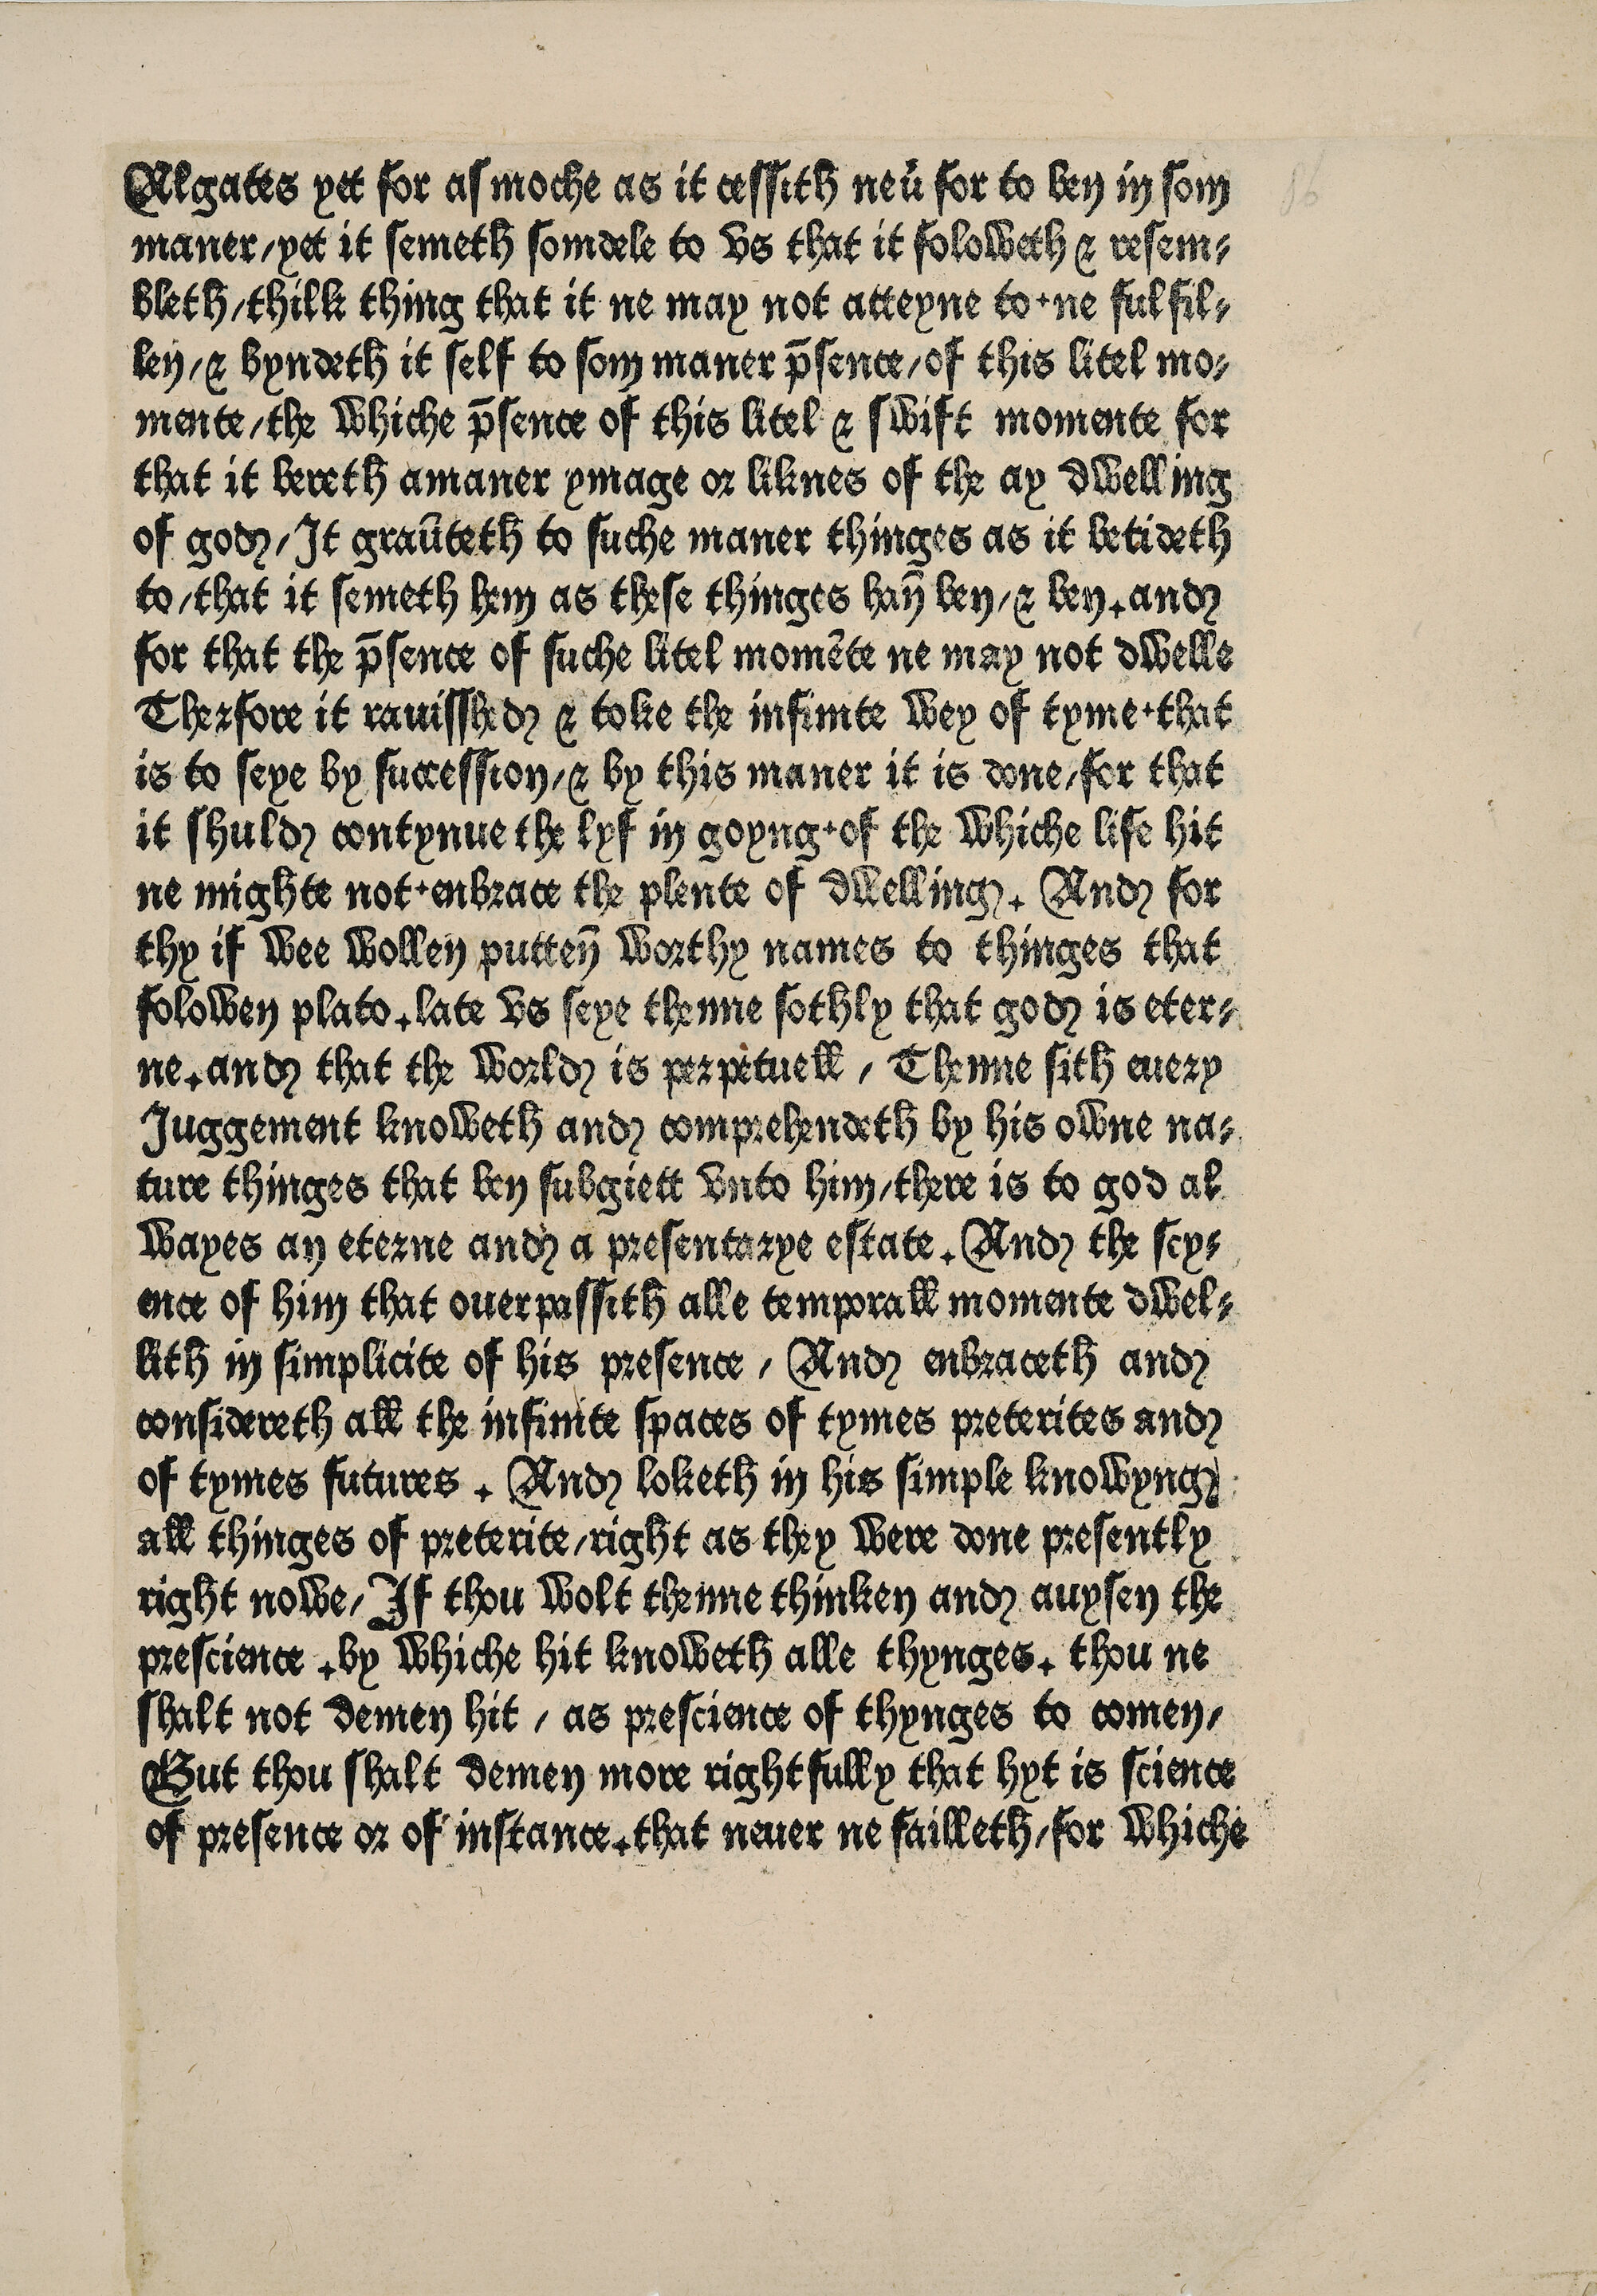 Algates yet for as moche as it cessith neũ for to ben in som
maner/yet it semeth somdele to vs that it foloweth & resem⸗
bleth/thilk thing that it ne may not atteyne to·ne fulfil⸗
len/& byndeth it self to som maner p̄sence/of this litel mo⸗
mente/the whiche p̄sence of this litel & swift momente for
that it bereth amaner ymage or liknes of the ay dwelling
of god/It graũteth to suche maner thinges as it betideth
to/that it semeth hem as these thinges han̄ ben/& ben.and
for that the p̄sence of suche litel momēte ne may not dwelle
Therfore it rauisshed & toke the infinite wey of tyme·that
is to seye by succession/& by this maner it is done/for that
it shuld contynue the lyf in goyng·of the whiche life hit
ne mighte not·enbrace the plente of dwelling. And for
thy if wee wollen putten̄ worthy names to thinges that
folowen plato.late vs seye thenne sothly that god is eter⸗
ne.and that the world is perpetuell / Thenne sith euery
Juggement knoweth and comprehendeth by his owne na⸗
ture thinges that ben subgiett vnto him/there is to god al
wayes an eterne and a presentarye estate. And the scy⸗
ence of him that ouerpassith alle temporall momente dwel⸗
lith in simplicite of his presence / And enbraceth and
considereth all the infinite spaces of tymes preterites and
of tymes futures . And loketh in his simple knowyng
all thinges of preterite/right as they were done presently
right nowe/ If thou wolt thenne thinken and auysen the
prescience .by whiche hit knoweth alle thynges. thou ne
shalt not demen hit / as prescience of thynges to comen/
But thou shalt demen more rightfully that hyt is science
of presence or of instance.that neuer ne failleth/for whiche
86